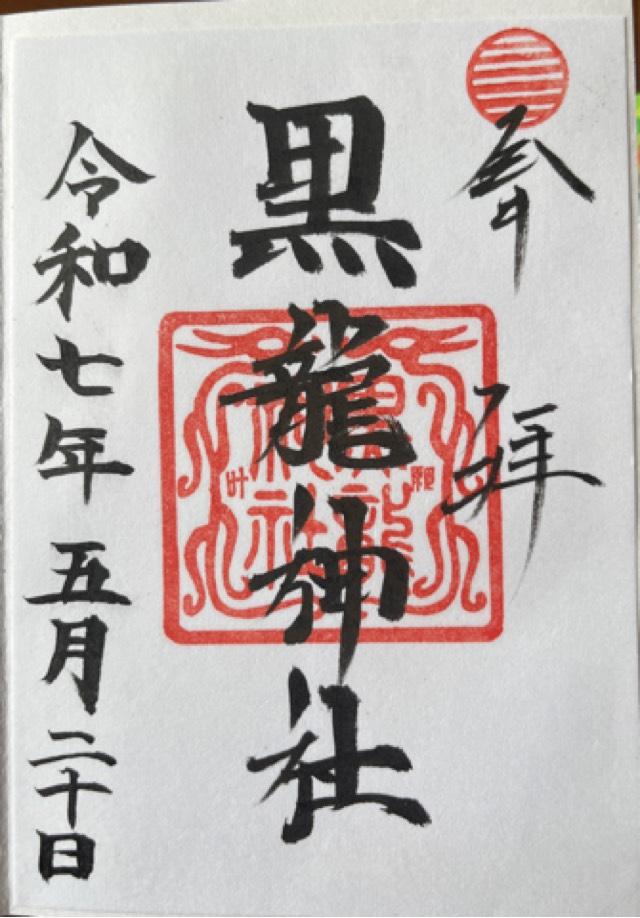 奉拝
黒龍神社
令和七年五月二十日